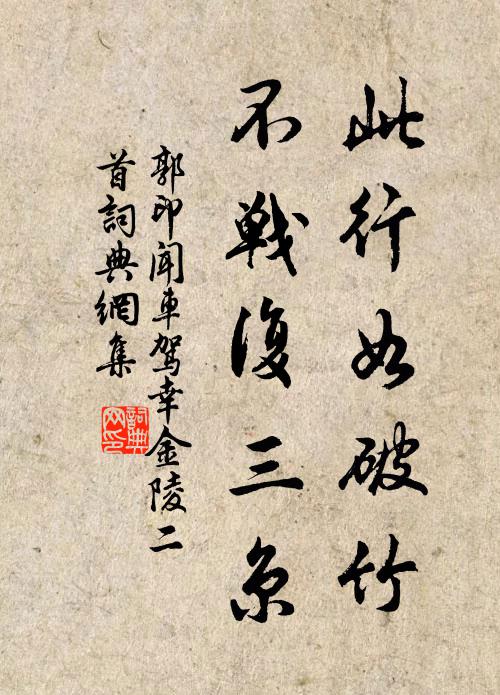 此行如破竹
不戰復三京
郭印聞車駕幸金陵二
首詞典網集
詞典
网印